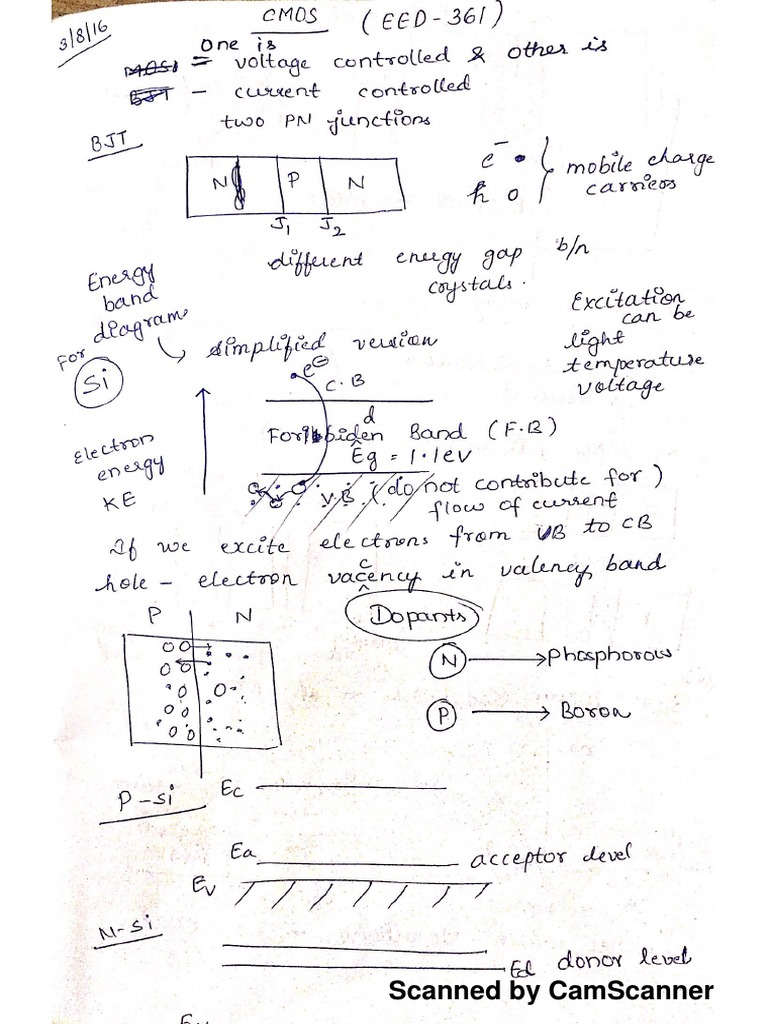 3/8/16
CMOS (EED-361)
One is
= voltage controlled & other is
BJT - current controlled
two PN junctions
BJT
N P N
J1 J2
e⁻ • } mobile charge
h o carriers
different energy gap b/n
crystals.
Energy
band
diagram
For
Si
simplified version
Excitation
can be
light
temperature
voltage
e⊖
C.B
Electron
energy
KE
d
Forbiden Band (F.B)
Eg = 1.1ev
V.B (do not contribute for)
flow of current
If we excite electrons from VB to CB
c
hole - electron vacency in valency band
P N
Dopants
N → Phosphorous
P → Boron
P-si
Ec
Ea acceptor level
Ev
N-si
Ed donor level
Ev
Scanned by CamScanner